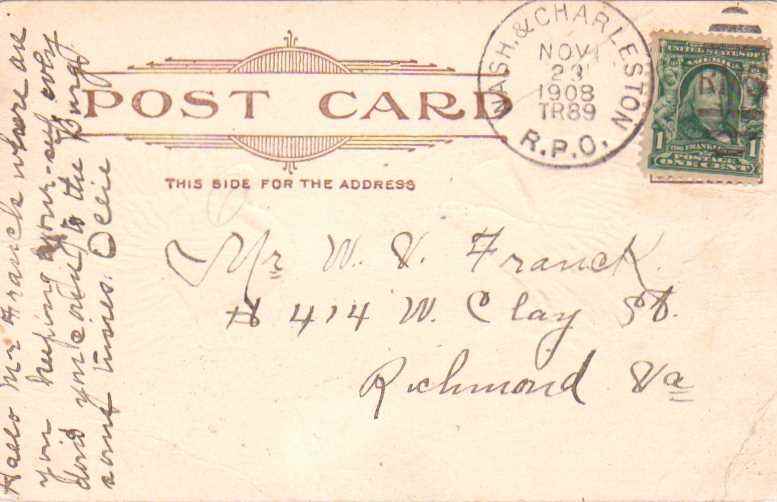 POST CARD
THIS SIDE FOR THE ADDRESS
WASH. & CHARLESTON
NOV
23
1908
TR89
R.P.O.
UNITED STATES OF
AMERICA
1 1
POSTAGE
ONE CENT
Mr W. V. Franck.
# 414 W. Clay St.
Richmond Va
Hallo Mr Franck where are
you keeping your-self why
dond you come to the Burgs
some times. Ollie